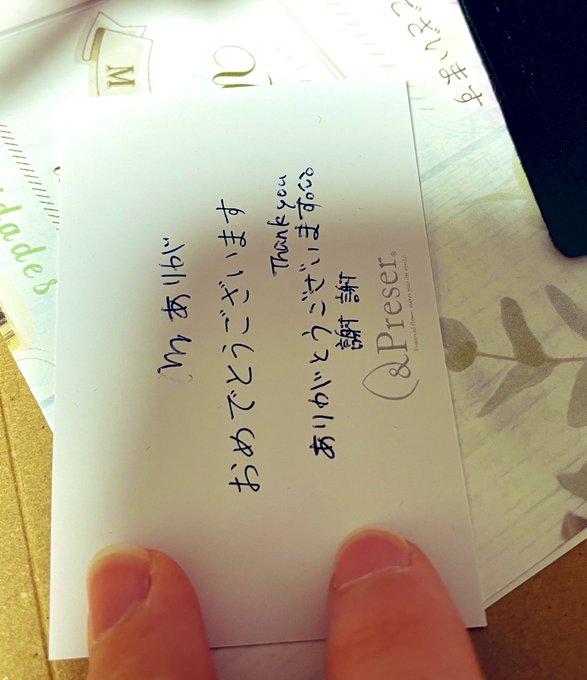 ありが
おめでとうございます
Thank you
ありがとうございます。
謝謝
&Preser.®
ございます
M